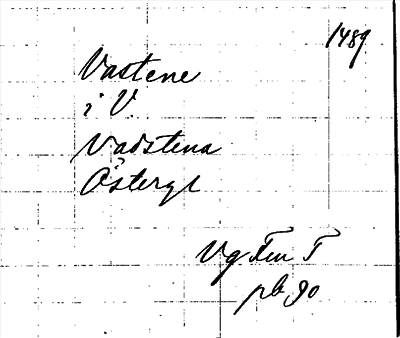 1489
Vastene
i V.
Vadstena
Östergl
Vg Fem T
pb 90